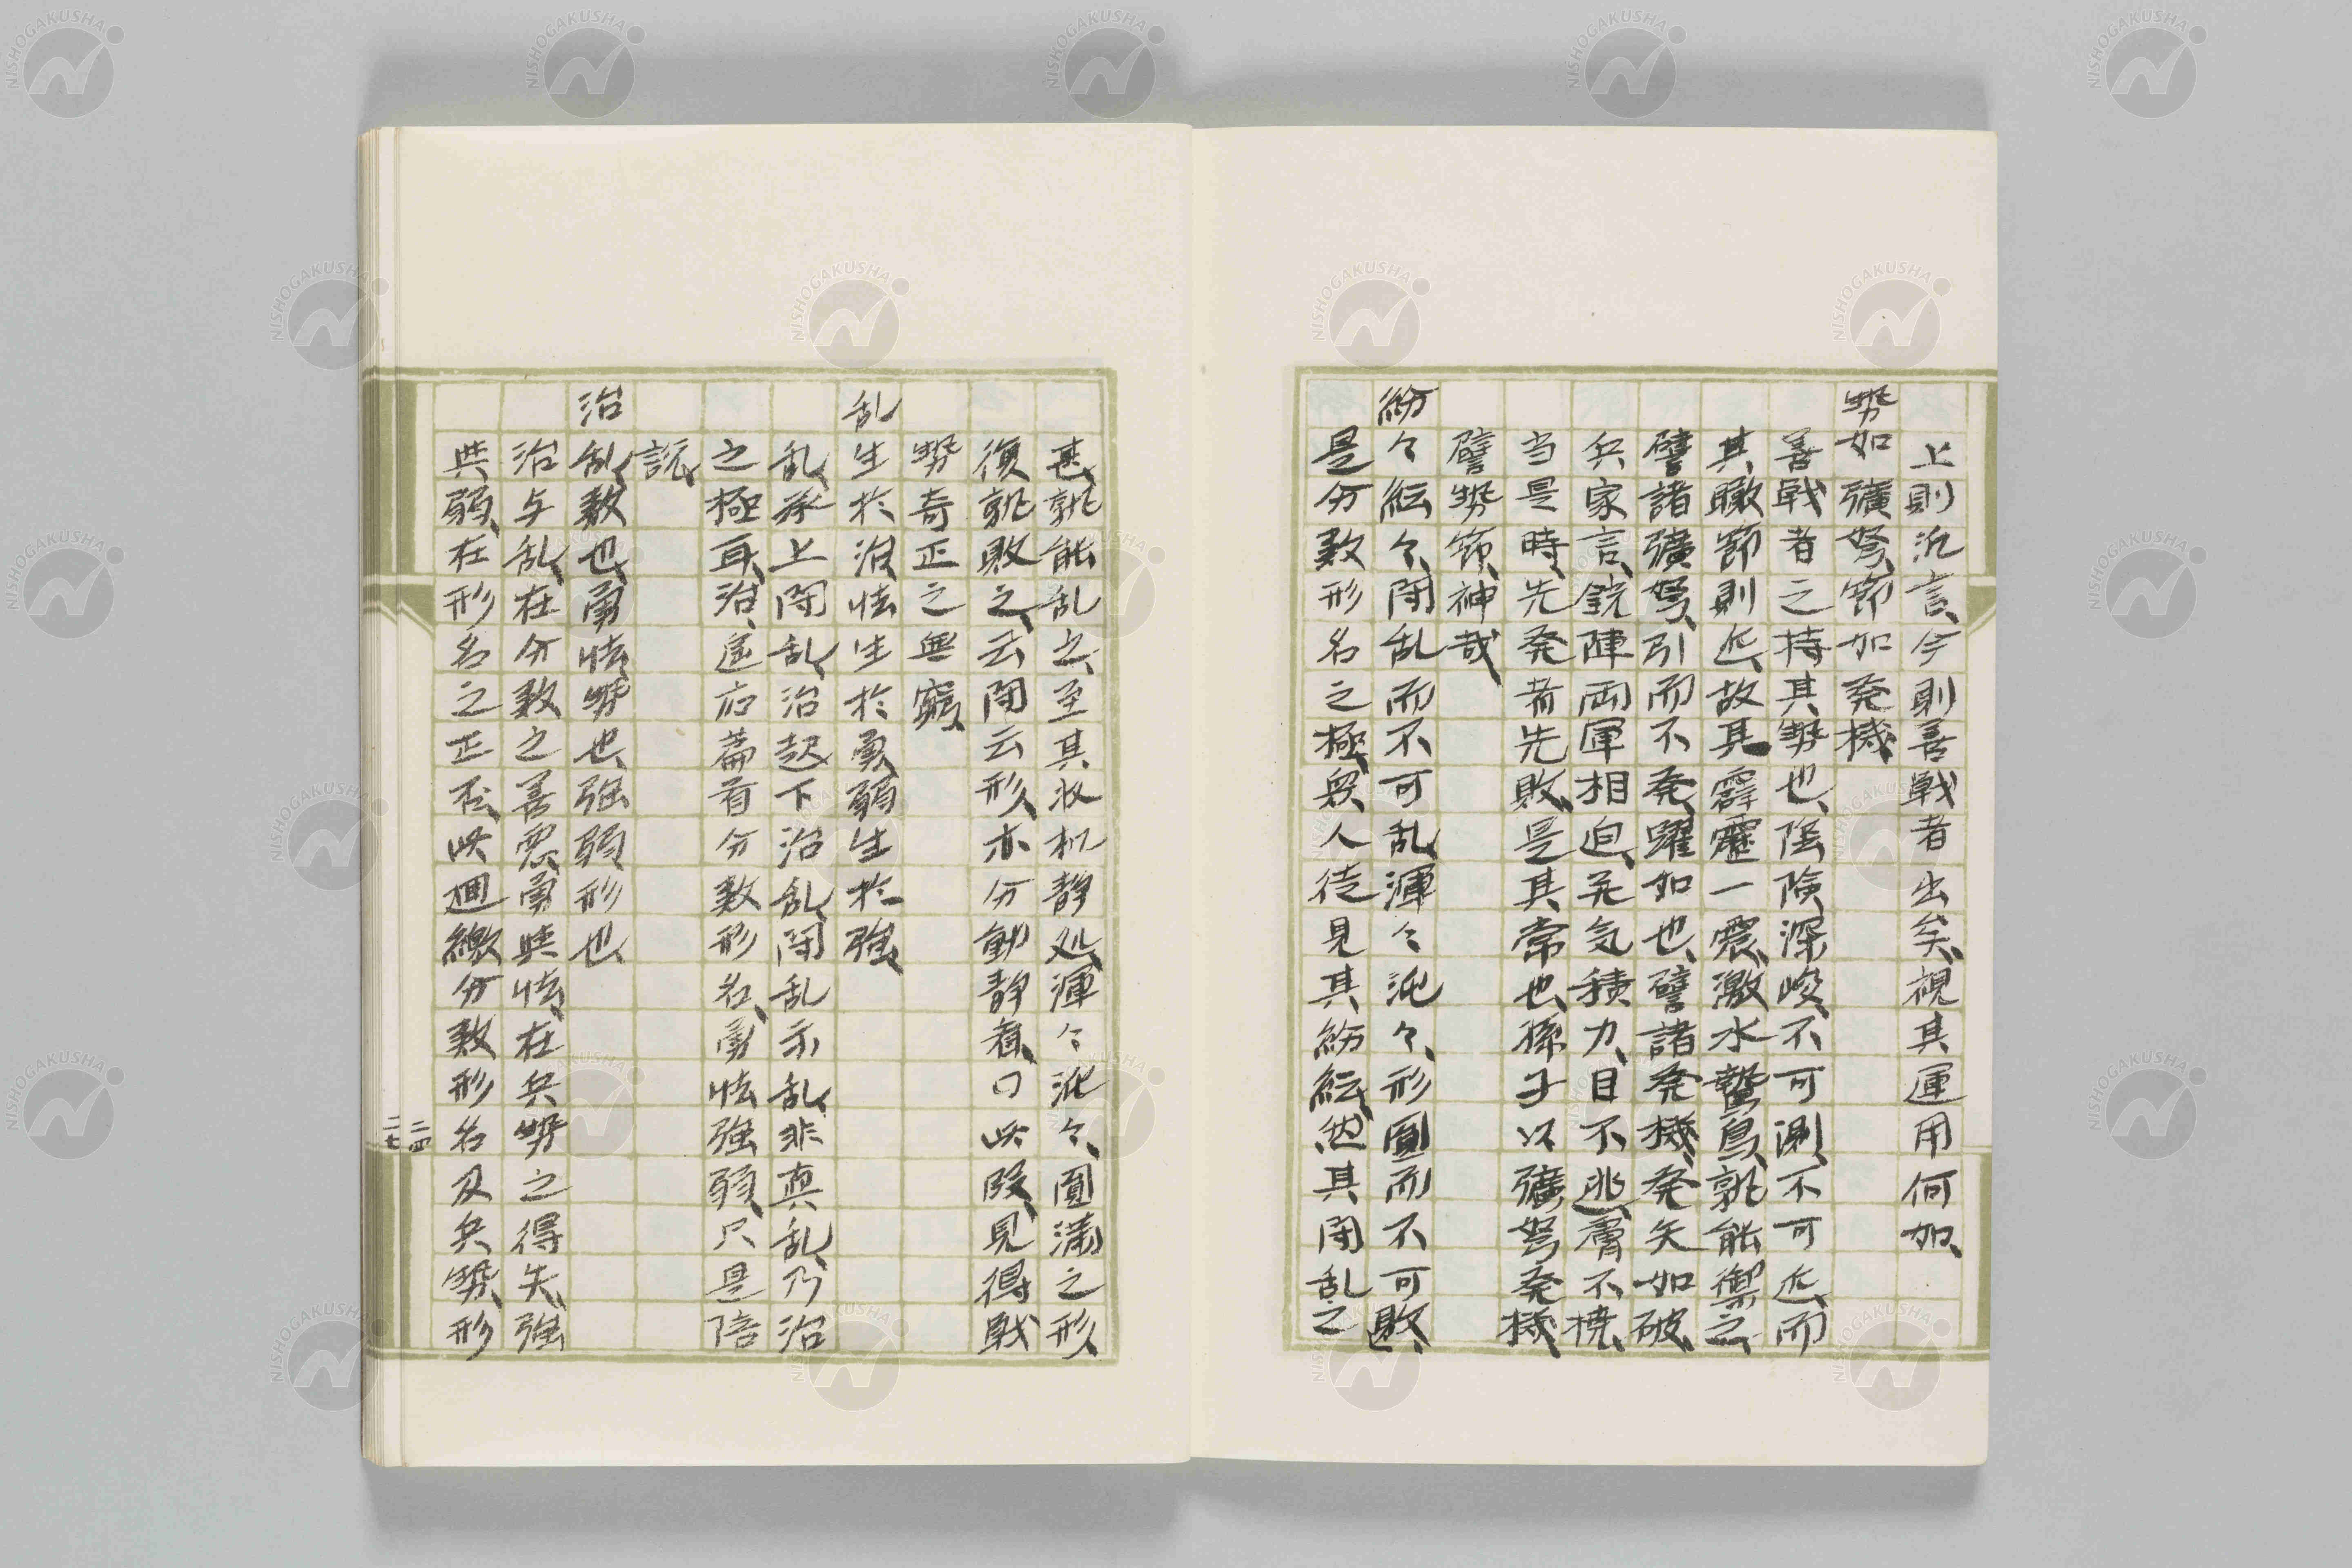 上則汎言、今則善戦者出矣、視其運用何如、
勢如彍弩、節如発機
善戦者之持其勢也、陰険深峻、不可測、不可近、而
其瞰節則近、故其霹靂一震、激水鷙鳥、孰能禦之、
譬諸彍弩、引而不発、躍如也、譬諸発機、発矢如破、
兵家言、銃陣両軍相迫、死気積力、目不逃、膚不撓、
当是時、先発者先敗、是其常也、孫子以彍弩発機
譬勢節、神哉、
紛々紜々、闘乱而不可乱、渾々沌々、形円而不可敗、
是分数形名之極、衆人徒見其紛紜、然其闘乱之
甚、孰能乱之、至其收机静処、渾々沌々、圓満之形、
復孰敗之、云闘云形、亦分動静看、〇此段、見得戦
勢奇正之無窮、
乱生於治、怯生於勇、弱生於強、
乱承上闘乱、治起下治乱、闘乱示乱、非真乱、乃治
之極耳、治、還応篇首分数形名、勇怯強弱、只是陪
説、
治乱数也、勇怯勢也、強弱形也
治与乱、在分数之善悪、勇與怯、在兵勢之得失、強
與弱、在形名之正否、此廻繳分数形名及兵勢、形
二四
二七
NISHOGAKUSHA